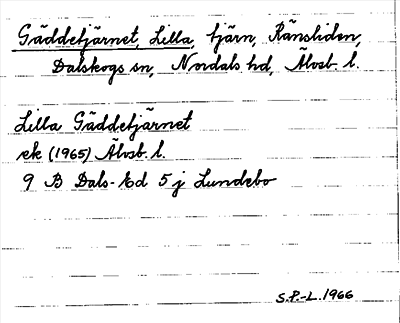 Gäddetjärnet, Lilla, tjärn, Ränsliden,
Dalskogs sn, Nordals hd, Älvsb. l.
Lilla Gäddetjärnet
ek (1965) Älvsb. l.
9 B Dals-Ed 5 j Lundebo
S.P.-L. 1966